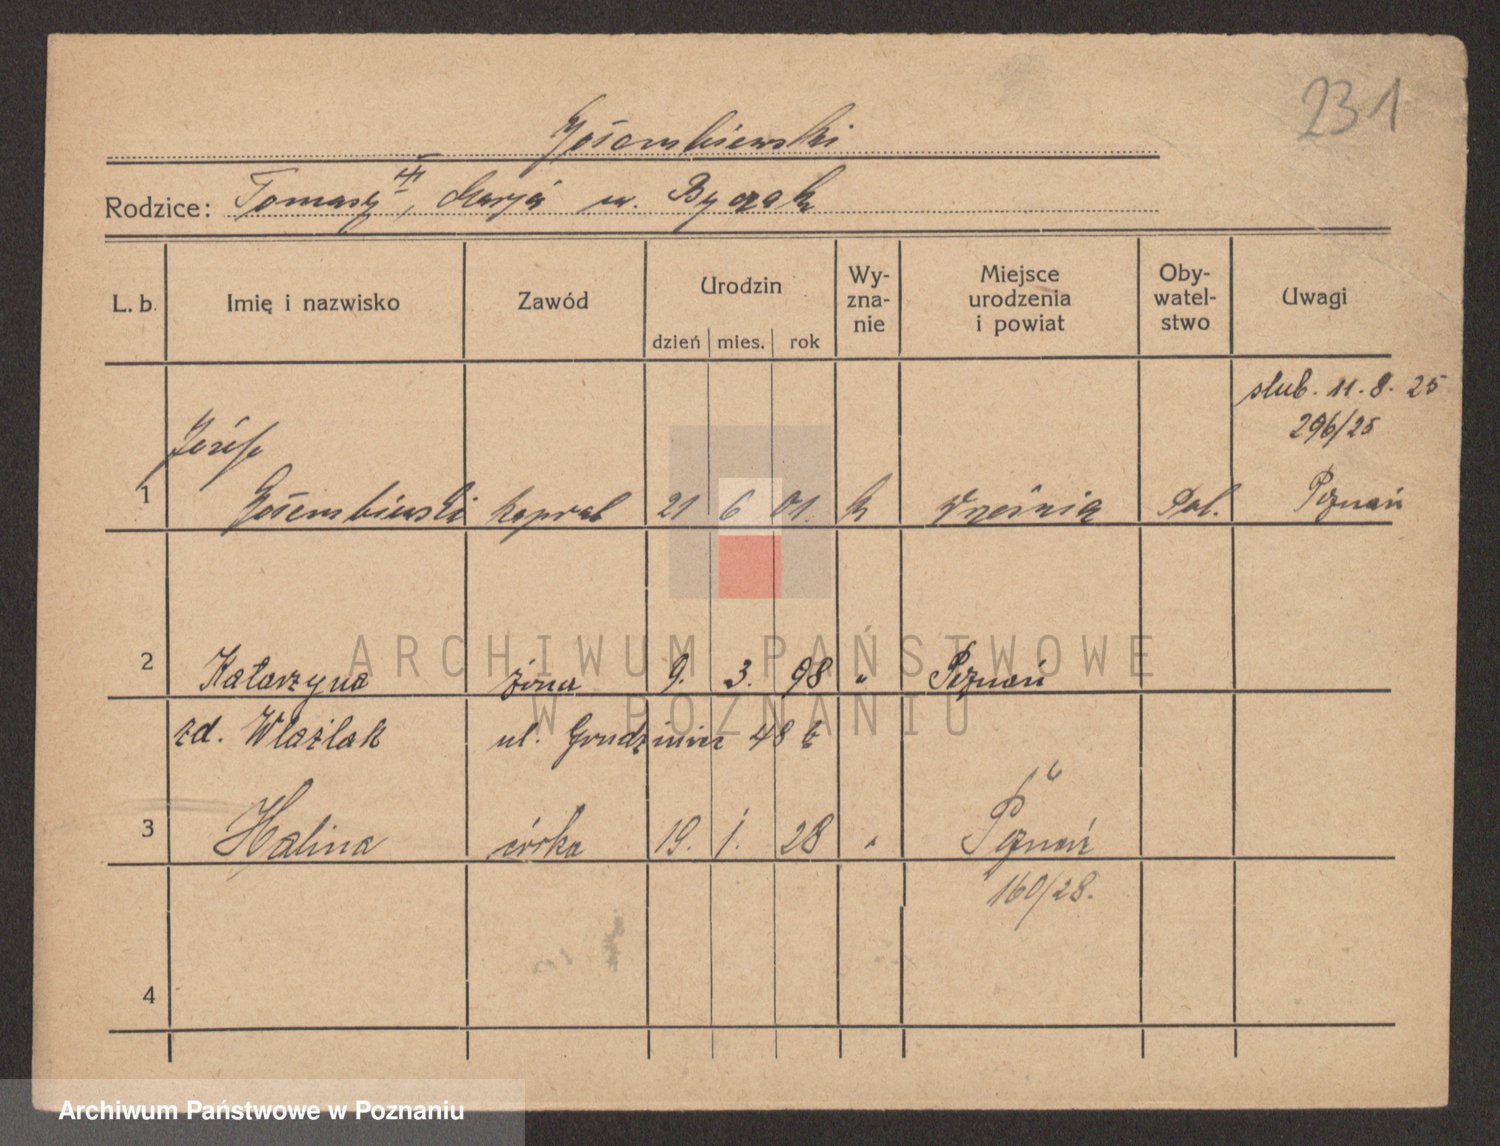 231
Gołembiewski
Rodzice: Tomasz, Marja u. Byczak
L. b. Imię i nazwisko Zawód Urodzin Wy-zna-nie Miejsce urodzenia i powiat Oby-watel-stwo Uwagi
dzień mies. rok
ślub. 11. 8. 25
296/25
Józef
1 Gołembiewski kapral 21 6 01. k Września Pol. Poznań
2 Katarzyna żona 9. 3. 98 " Poznań
zd. Wlaźlak ul. 48
3 Halina córka 19. 1. 28 " Poznań
160/28.
4
ARCHIWUM PAŃSTWOWE
W POZNANIU
Archiwum Państwowe w Poznaniu